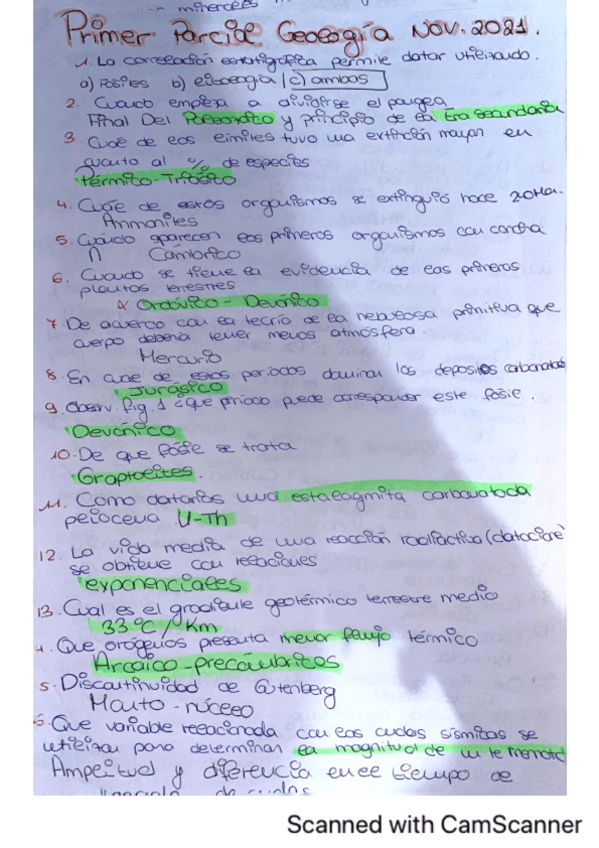 minerales
Primer Parcial Geología NOV. 2021.
1. La correlación estratigráfica permite datar utilizando.
a) Fósiles b) eitología (c) ambos
2. Cuando empieza a dividirse el pangea
Final Del Paleozoico y principio de la Era secundaria
3 Cuál de los límites tuvo una extinción mayor en
cuanto al % de especies
Pérmico-Triásico
4. Cuál de estos organismos se extinguió hace 20Ma.
Ammonites
5. Cuándo aparecen los primeros organismos con concha
Cámbrico
6. Cuando se tiene la evidencia de las primeras
plantas terrestres
Ordóvico - Devónico
7. De acuerdo con la teoría de la nebulosa primitiva que
cuerpo debería tener menos atmósfera.
Mercurio
8. En cuál de estos periodos dominan los depositos carbonatados
Jurásico
9. Observ. fig. 1 ¿que periodo puede corresponder este fósil.
Devónico
10. De que fósil se trata
Graptolites.
11. Como datarías una estalagmita carbonatada
pliocena U-Th
12. La vida media de una reacción radiactiva (datación)
se obtiene con relaciones
exponenciales
13. Cual es el gradiente geotérmico terrestre medio
33°C/Km
4. Que orógenos presenta menor flujo térmico
Arcaico-precámbricos
5. Discontinuidad de Gutenberg
Manto-núcleo
6. Que variable relacionada con las ondas sísmicas se
utilizan para determinar la magnitud de un
Amplitud y diferencia en el tiempo de
llegada de ondas
Scanned with CamScanner